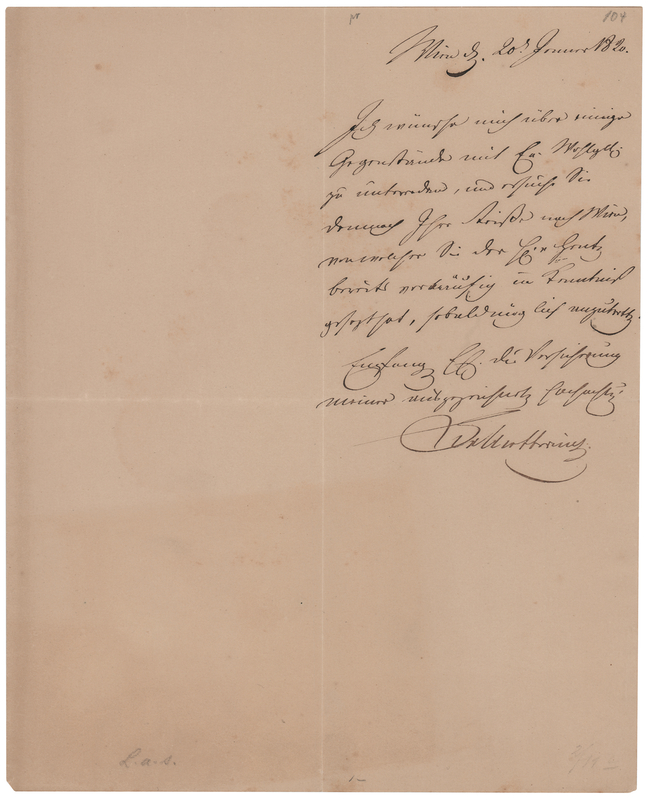 104
Wien d. 20. Januar 1820.
Ich wünsche mich über einige
Gegenstände mit Ew. Wohlgb.
zu unterreden, und ersuche Sie
demnach Ihre Reise nach Wien,
von welcher Sie der Hr. v. Gentz
bereits vorläufig in Kenntniß
gesetzt hat, sobald möglich anzutretten.
Empfang die Versicherung
meiner ausgezeichneten Hochachtg.
Metternich
L.a.s.